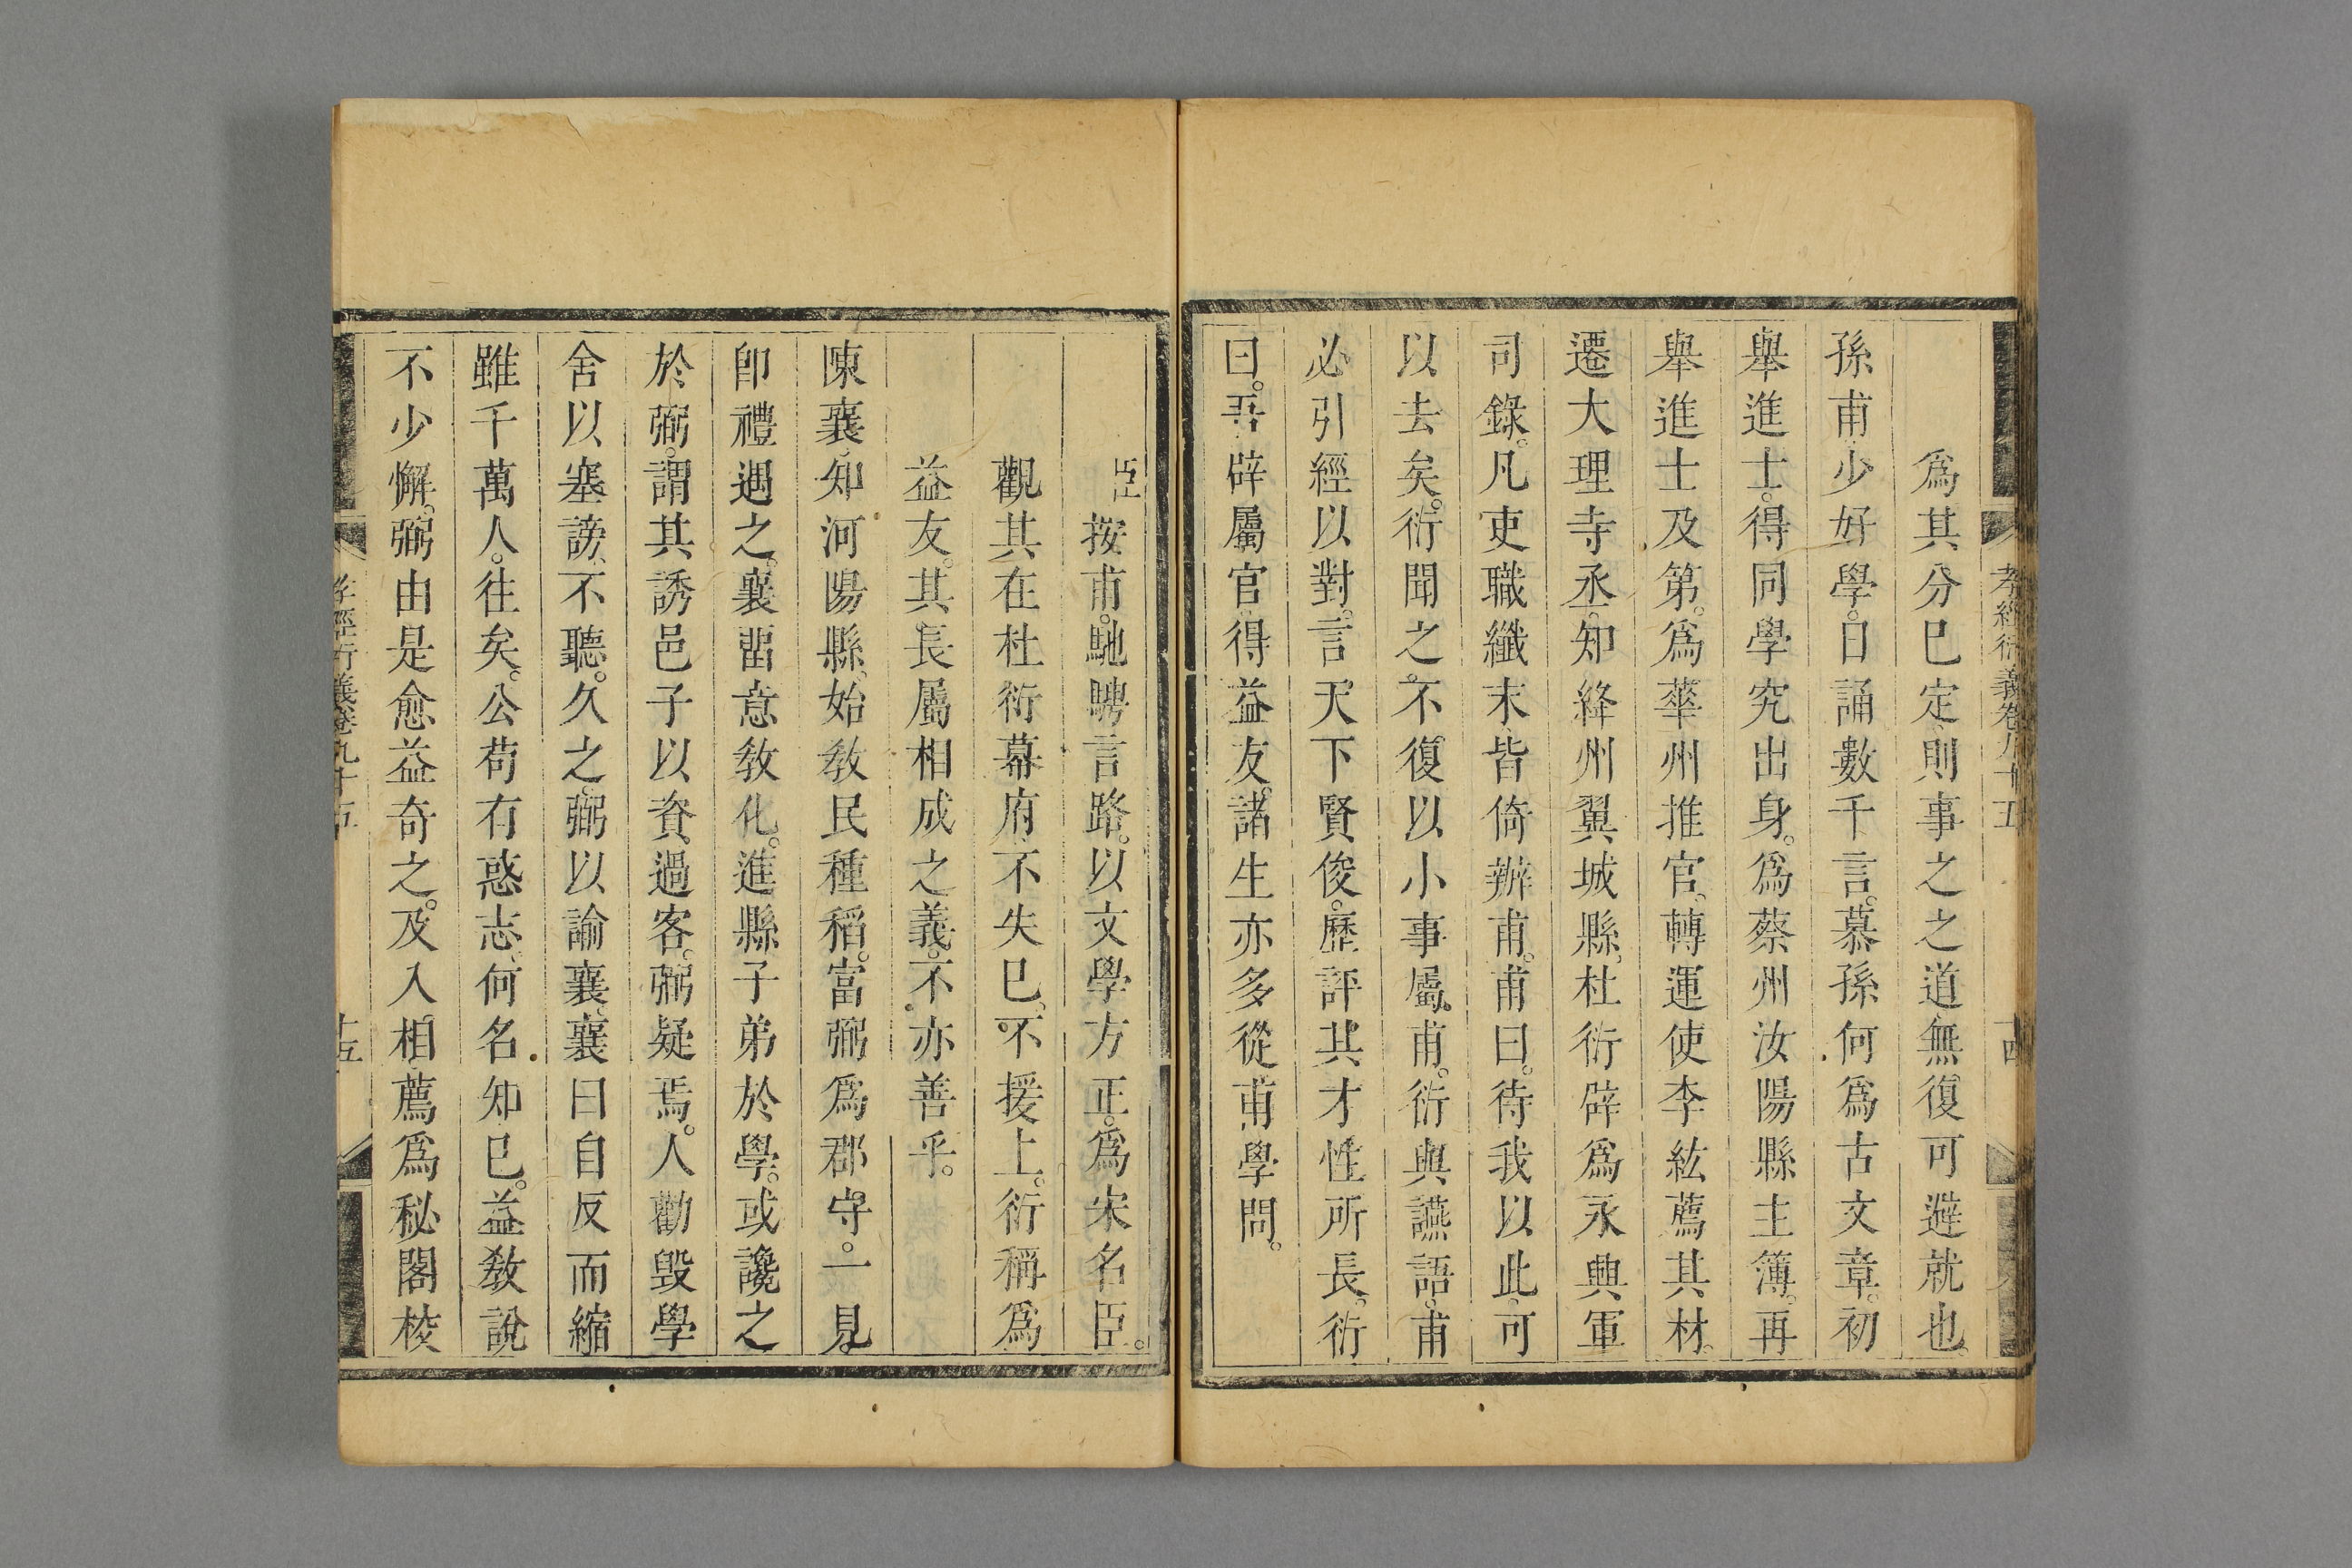 爲其分已定則事之之道無復可避就也。
孫甫少好學。日誦數千言。慕孫何爲古文章。初
舉進士。得同學究出身。爲蔡州汝陽縣主簿。再
舉進士及第。爲華州推官。轉運使李紘薦其材。
遷大理寺丞。知絳州翼城縣。杜衍辟爲永興軍
司錄。凡吏職纖末皆倚辦甫。甫曰。待我以此。可
以去矣。衍聞之。不復以小事屬。甫。衍與讌語。甫
必引經以對。言天下賢俊。歷評其才性所長。衍
曰。吾辟屬官。得益友。諸生亦多從甫學問。
臣按甫。馳騁言路。以文學方正。爲宋名臣。
觀其在杜衍幕府。不失已。不援上。衍稱爲
益友。其長屬相成之義。不亦善乎。
陳襄知河陽縣。始敎民種稻。富弼爲郡守。一見
卽禮遇之。襄畱意敎化。進縣子弟於學。或讒之
於弼。謂其誘邑子以資過客。弼疑焉。人勸毀學
舍以塞謗。不聽。久之。弼以諭襄。襄曰自反而縮
雖千萬人。往矣。公苟有惑志。何名知已。益敎說
不少懈。弼由是愈益奇之。及入相。薦爲秘閣校
孝經衍義卷九十五
十五